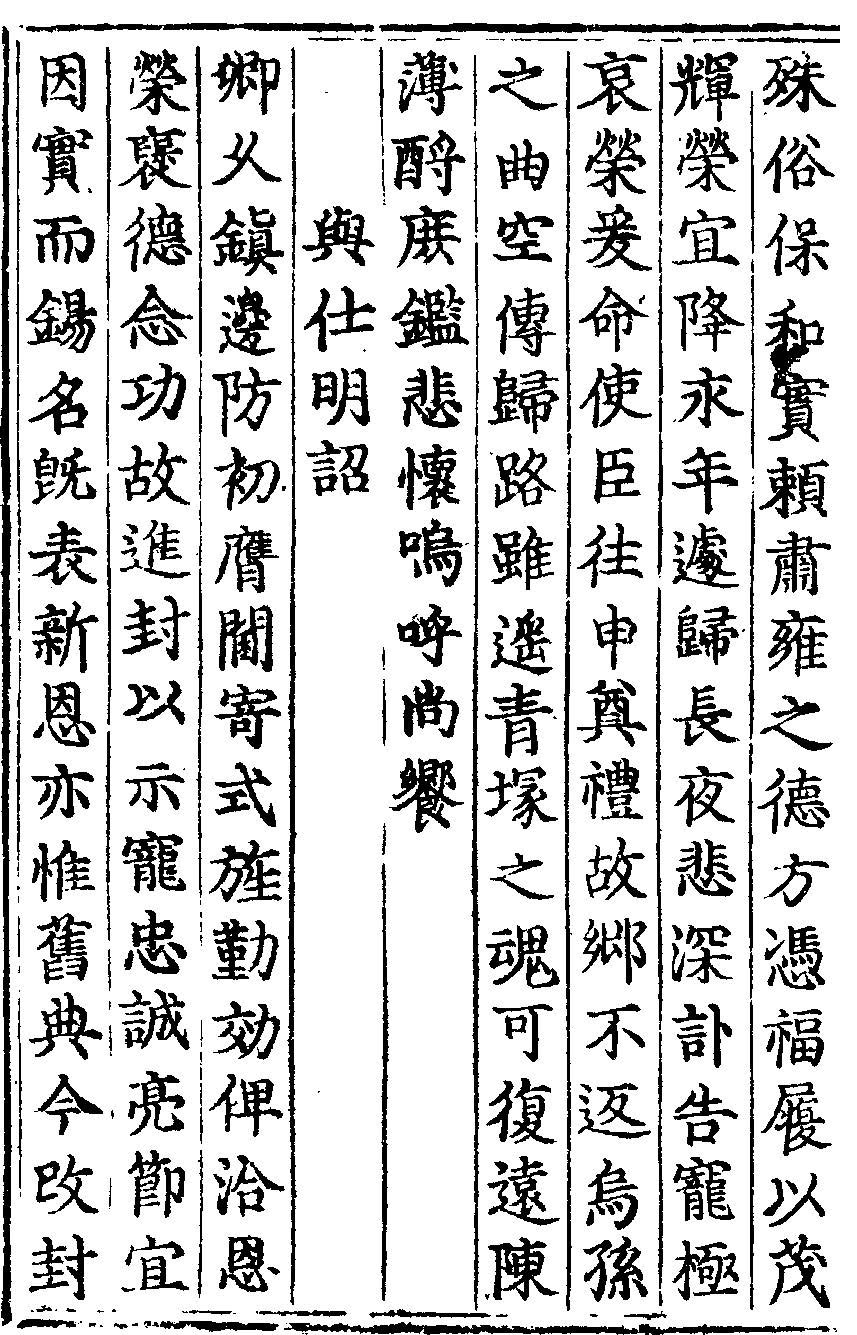 殊俗保和實賴肅雍之德方憑福履以茂
輝榮宜降永年遽歸長夜悲深訃告寵極
哀榮爰命使臣往申奠禮故鄉不返烏孫
之曲空傳歸路雖遙青塚之魂可復遠陳
薄酹庶鑑悲懷嗚呼尚饗
與仕明詔
卿乆鎮邊防初膺閫寄式旌勤効俾洽恩
榮襃德念功故進封以示寵忠誠亮節宜
因實而錫名旣表新恩亦惟舊典今改封